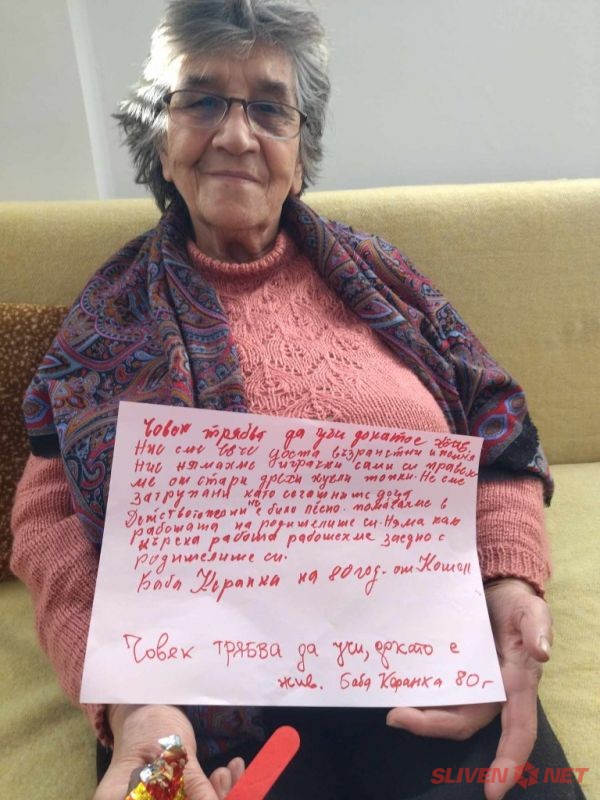 Човек трябва да учи докатое жив
Ние сме вече доста възрастни и пенсия
Ние нямахме играчки сами си правех
ме от стари дрехи кукли топки. Не сме
затрупани като сегашните деца
Детството ни не било лесно. помагахме в
работата на родителите си. Няма как
мъреха работа работехме заедно с
родителите си.
Баба Керанка на 80 год. от Кошан
Човек трябва да учи, докато е
жив. Баба Керанка 80 г
SLIVEN NET